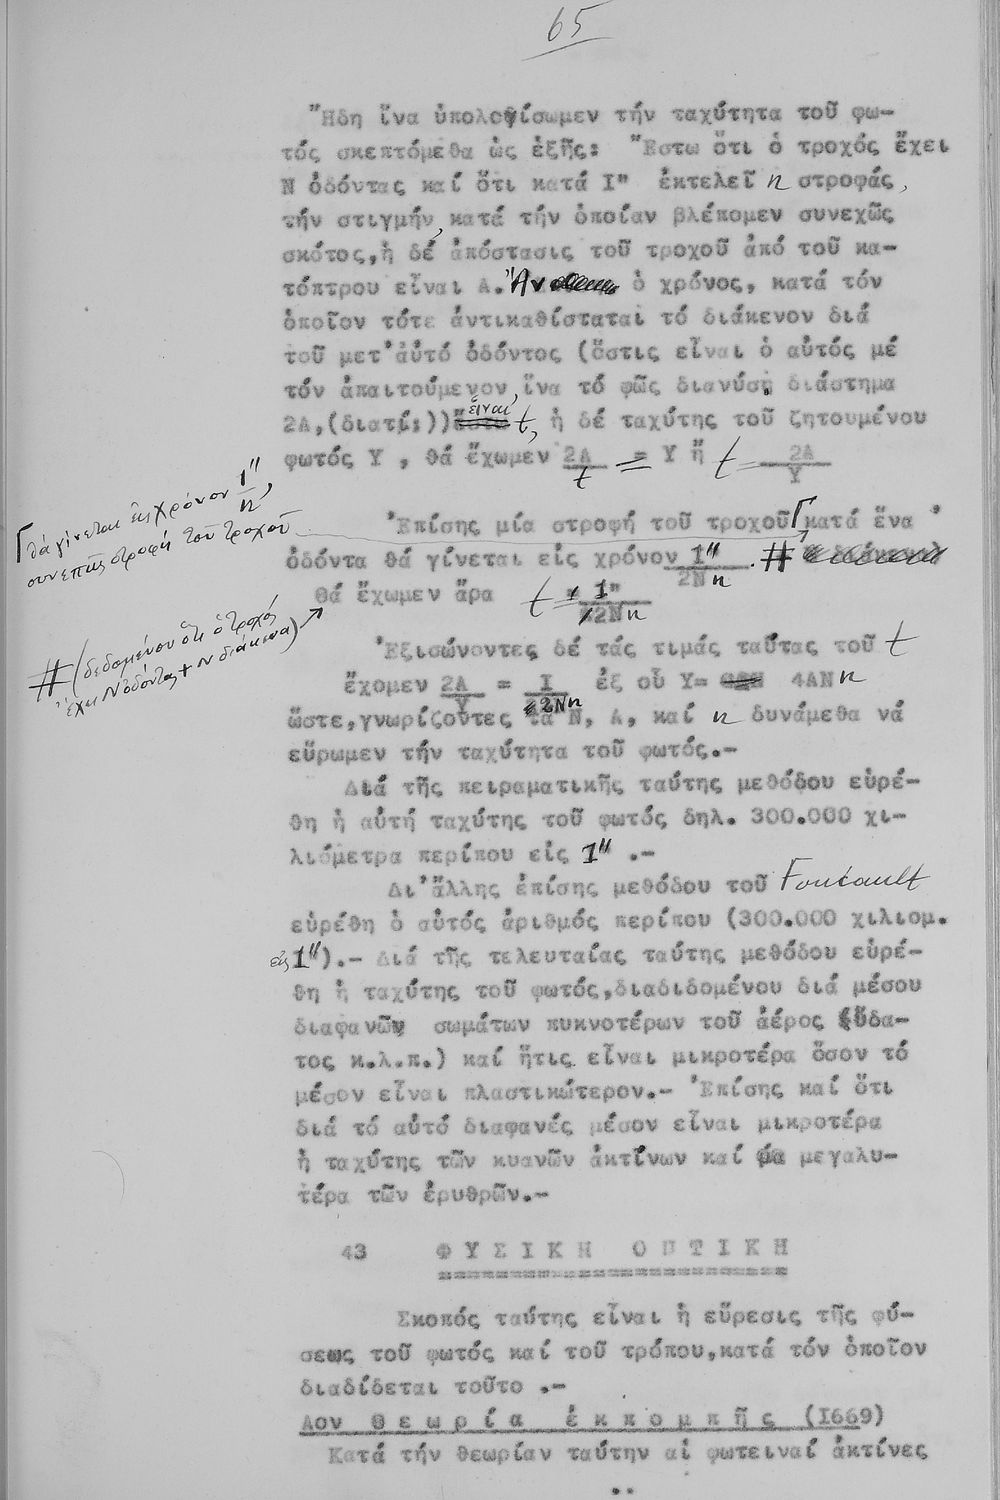 65
Ἤδη ἵνα ὑπολογίσωμεν τήν ταχύτητα τοῦ φω-
τός σκεπτόμεθα ὡς ἑξῆς: Ἔστω ὅτι ὁ τροχός ἔχει
Ν ὀδόντας καί ὅτι κατά Ι" ἐκτελεῖ n στροφάς,
τήν στιγμήν, κατά τήν ὁποίαν βλέπομεν συνεχῶς
σκότος,ἡ δέ ἀπόστασις τοῦ τροχοῦ ἀπό τοῦ κα-
τόπτρου εἶναι Α. Ἄν ὁ χρόνος, κατά τόν
ὁποῖον τότε ἀντικαθίσταται τό διάκενον διά
τοῦ μετ'αὐτό ὀδόντος (ὅστις εἶναι ὁ αὐτός μέ
τόν ἀπαιτούμενον, ἵνα τό φῶς διανύσῃ διάστημα
2Α,(διατί;)) εἶναι t, ἡ δέ ταχύτης τοῦ ζητουμένου
φωτός Υ , θά ἔχωμεν 2Α/t = Υ ἤ t = 2Α/Υ
Ἐπίσης μία στροφή τοῦ τροχοῦ Γ κατά ἕνα
Γ θά γίνεται εἰς χρόνον 1"/n,
συνεπῶς στροφή τοῦ τροχοῦ
ὀδόντα θά γίνεται εἰς χρόνον 1"/2Νn . #
θά ἔχωμεν ἄρα t = 1"/2Νn
# (δεδομένου ὅτι ὁ τροχός
ἔχει Ν ὀδόντας + Ν διάκενα)
Ἐξισώνοντες δέ τάς τιμάς ταύτας τοῦ t
ἔχομεν 2Α/Υ = Ι/2Νn ἐξ οὗ Υ= 4ΑΝn
ὥστε,γνωρίζοντες τά Ν, Α, καί n δυνάμεθα νά
εὕρωμεν τήν ταχύτητα τοῦ φωτός.-
Διά τῆς πειραματικῆς ταύτης μεθόδου εὑρέ-
θη ἡ αὐτή ταχύτης τοῦ φωτός δηλ. 300.000 χι-
λιόμετρα περίπου εἰς 1" .-
Δι'ἄλλης ἐπίσης μεθόδου τοῦ Foucault
εὑρέθη ὁ αὐτός ἀριθμός περίπου (300.000 χιλιομ.
εἰς 1").- Διά τῆς τελευταίας ταύτης μεθόδου εὑρέ-
θη ἡ ταχύτης τοῦ φωτός,διαδιδομένου διά μέσου
διαφανῶν σωμάτων πυκνοτέρων τοῦ ἀέρος (ὕδα-
τος κ.λ.π.) καί ἥτις εἶναι μικροτέρα ὅσον τό
μέσον εἶναι πλαστικώτερον.- Ἐπίσης καί ὅτι
διά τό αὐτό διαφανές μέσον εἶναι μικροτέρα
ἡ ταχύτης τῶν κυανῶν ἀκτίνων καί μεγαλυ-
τέρα τῶν ἐρυθρῶν.-
43 ΦΥΣΙΚΗ ΟΠΤΙΚΗ
Σκοπός ταύτης εἶναι ἡ εὕρεσις τῆς φύ-
σεως τοῦ φωτός καί τοῦ τρόπου,κατά τόν ὁποῖον
διαδίδεται τοῦτο .-
Αον Θεωρία ἐκπομπῆς (Ι669)
Κατά τήν θεωρίαν ταύτην αἱ φωτειναί ἀκτίνες